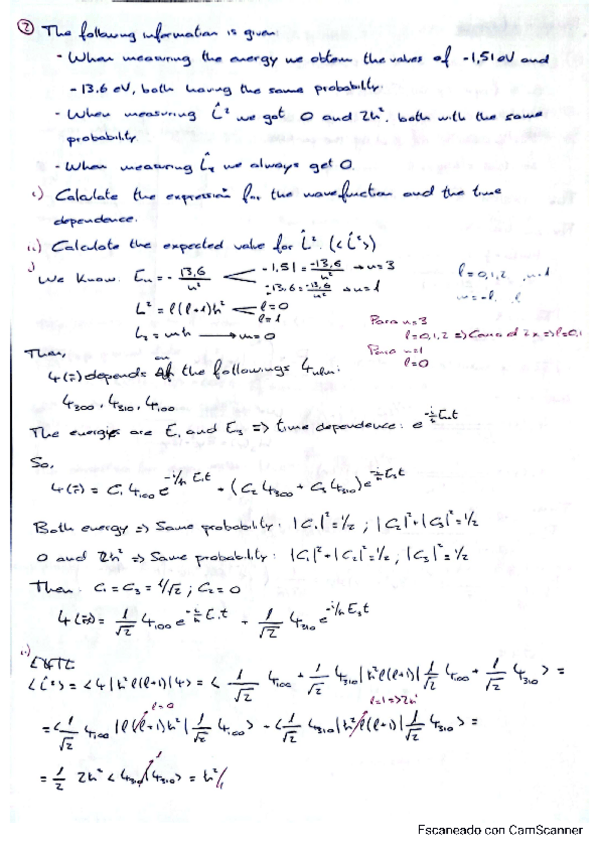 ② The following information is given:
- When measuring the energy we obtain the values of -1,51 eV and
- 13.6 eV, both having the same probability.
- When measuring L̂² we get 0 and 2ħ², both with the same
probability
- When measuring L̂z we always get 0.
i.) Calculate the expression for the wavefunction and the time
dependence.
ii.) Calculate the expected value for L̂². (<L̂²>)
i) We know: En = - 13,6/n² -1,51 = -13,6/n² → n=3
-13,6 = -13,6/n² → n=1
l=0,1,2 n-1
m=-l, l
L² = l(l+1)ħ² l=0
l=1
Lz = mħ → m=0
Para n=3
l=0,1,2 => l=0,1
Para n=1
l=0
Then,
Ψ(r) depends on the followings Ψnlm:
Ψ300, Ψ310, Ψ100
The energies are E1 and E3 => time dependence: e^(-i/ħ En t)
So,
Ψ(r) = C1 Ψ100 e^(-i/ħ E1 t) + (C2 Ψ300 + C3 Ψ310) e^(-i/ħ E3 t)
Both energy => Same probability: |C1|² = 1/2 ; |C2|² + |C3|² = 1/2
0 and 2ħ² => Same probability: |C1|² + |C2|² = 1/2 ; |C3|² = 1/2
Then: C1 = C3 = 1/√2 ; C2 = 0
Ψ(r) = 1/√2 Ψ100 e^(-i/ħ E1 t) + 1/√2 Ψ310 e^(-i/ħ E3 t)
ii.)
<L̂²> = <Ψ|ħ² l(l+1)|Ψ> = < 1/√2 Ψ100 + 1/√2 Ψ310 |ħ² l(l+1)| 1/√2 Ψ100 + 1/√2 Ψ310 > =
l=0 l=1 => 2ħ²
= < 1/√2 Ψ100 |l(l+1)ħ²| 1/√2 Ψ100 > + < 1/√2 Ψ310 |ħ² l(l+1)| 1/√2 Ψ310 > =
= 1/2 2ħ² <Ψ310|Ψ310> = ħ²//
Escaneado con CamScanner